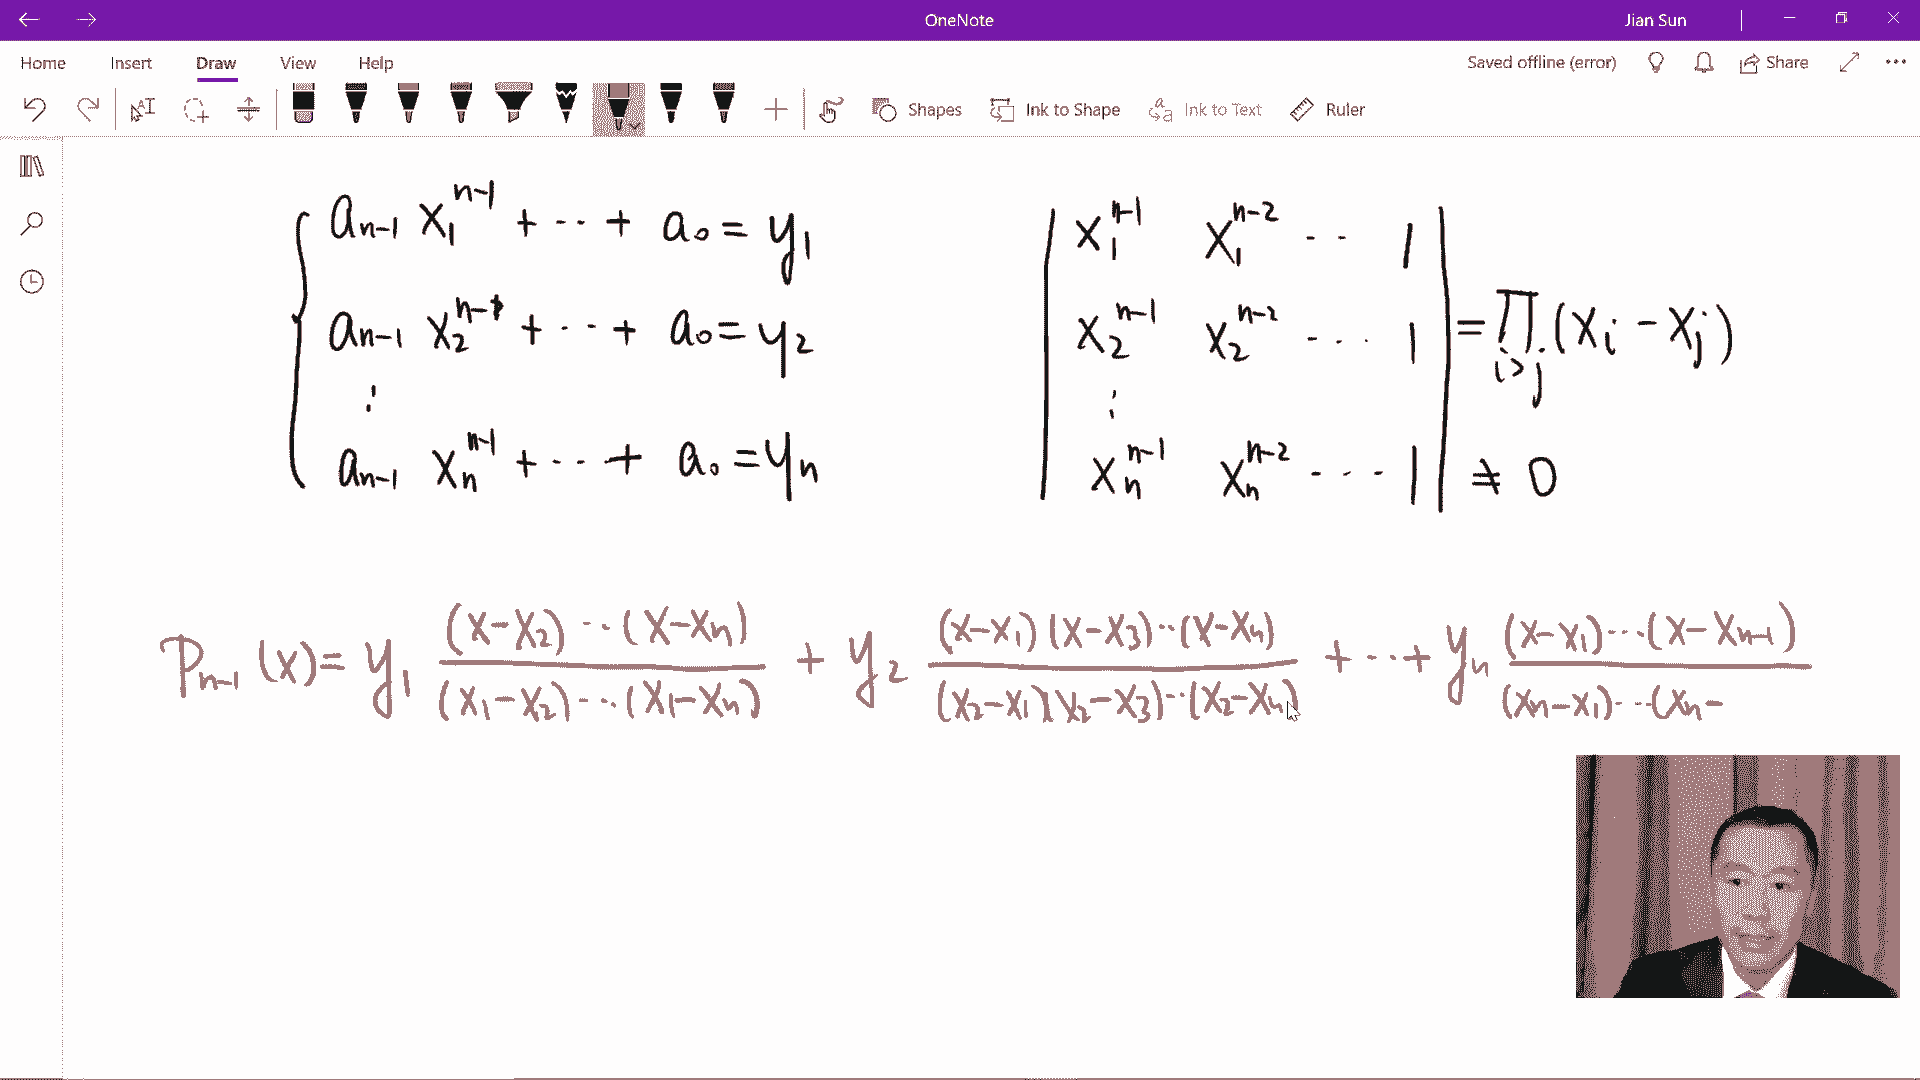 OneNote
Jian Sun
Home Insert Draw View Help
Saved offline (error) Share
Shapes Ink to Shape Ink to Text Ruler
a_{n-1} x_1^{n-1} + ··· + a_0 = y_1
a_{n-1} x_2^{n-1} + ··· + a_0 = y_2
⋮
a_{n-1} x_n^{n-1} + ··· + a_0 = y_n
| x_1^{n-1} x_1^{n-2} ·· 1 |
| x_2^{n-1} x_2^{n-2} ··· 1 | = ∏_{i>j} (x_i - x_j)
⋮
| x_n^{n-1} x_n^{n-2} ···· 1 | ≠ 0
P_{n-1}(x) = y_1 \frac{(x-x_2)···(x-x_n)}{(x_1-x_2)···(x_1-x_n)} + y_2 \frac{(x-x_1)(x-x_3)···(x-x_n)}{(x_2-x_1)(x_2-x_3)···(x_2-x_n)} + ··· + y_n \frac{(x-x_1)···(x-x_{n-1})}{(x_n-x_1)···(x_n-}